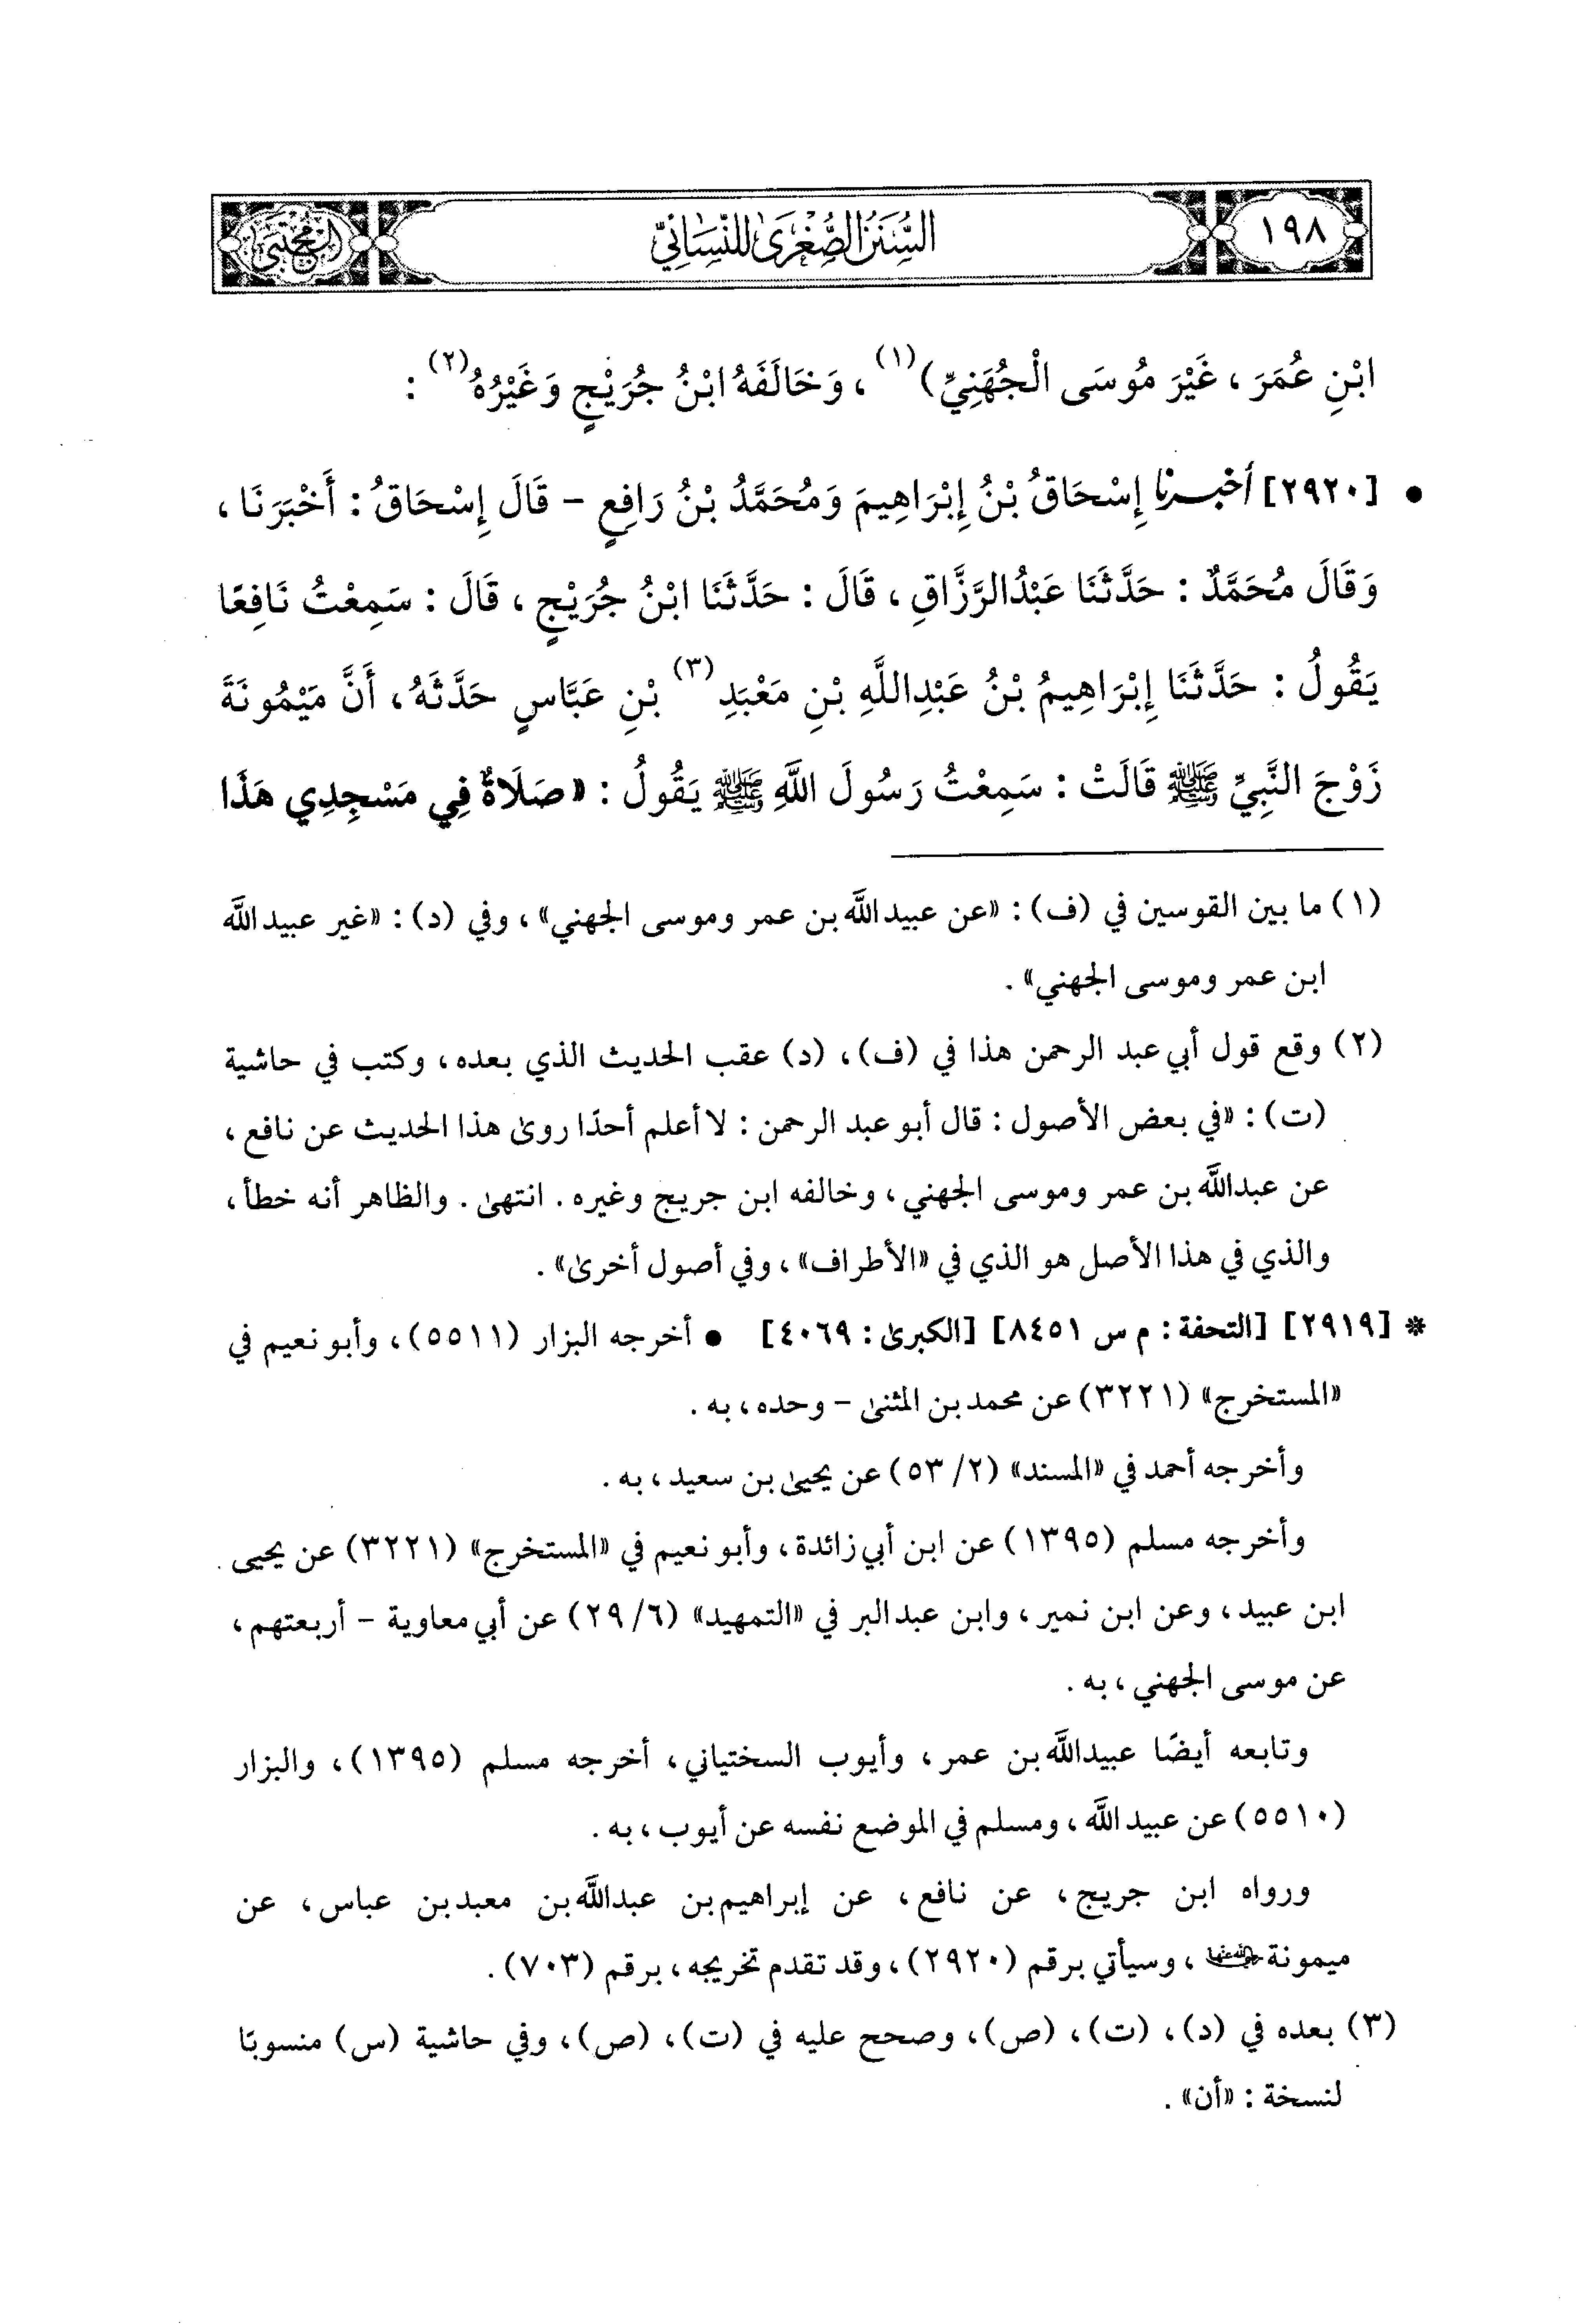 ١٩٨
السُّنَنُ الصُّغْرَىٰ لِلنَّسَائِيِّ
المجتبى
ابْنِ عُمَرَ ، غَيْرَ مُوسَى الْجُهَنِيِّ)(١) ، وَخَالَفَهُ ابْنُ جُرَيْجٍ وَغَيْرُهُ(٢) :
● [٢٩٢٠] أخبرنا إِسْحَاقُ بْنُ إِبْرَاهِيمَ وَمُحَمَّدُ بْنُ رَافِعٍ - قَالَ إِسْحَاقُ : أَخْبَرَنَا ،
وَقَالَ مُحَمَّدٌ : حَدَّثَنَا عَبْدُالرَّزَّاقِ ، قَالَ : حَدَّثَنَا ابْنُ جُرَيْجٍ ، قَالَ : سَمِعْتُ نَافِعًا
يَقُولُ : حَدَّثَنَا إِبْرَاهِيمُ بْنُ عَبْدِاللَّهِ بْنِ مَعْبَدِ(٣) بْنِ عَبَّاسٍ حَدَّثَهُ ، أَنَّ مَيْمُونَةَ
زَوْجَ النَّبِيِّ ﷺ قَالَتْ : سَمِعْتُ رَسُولَ اللَّهِ ﷺ يَقُولُ : «صَلَاةٌ فِي مَسْجِدِي هَذَا
(١) ما بين القوسين في (ف) : «عن عبيداللَّه بن عمر وموسى الجهني» ، وفي (د) : «غير عبيداللَّه
ابن عمر وموسى الجهني» .
(٢) وقع قول أبي عبد الرحمن هذا في (ف) ، (د) عقب الحديث الذي بعده ، وكتب في حاشية
(ت) : «في بعض الأصول : قال أبو عبد الرحمن : لا أعلم أحدًا روىٰ هذا الحديث عن نافع ،
عن عبداللَّه بن عمر وموسى الجهني ، وخالفه ابن جريج وغيره . انتهىٰ . والظاهر أنه خطأ ،
والذي في هذا الأصل هو الذي في «الأطراف» ، وفي أصول أخرىٰ» .
* [٢٩١٩] [التحفة : م س ٨٤٥١] [الكبرىٰ : ٤٠٦٩] ● أخرجه البزار (٥٥١١) ، وأبو نعيم في
«المستخرج» (٣٢٢١) عن محمد بن المثنىٰ - وحده ، به .
وأخرجه أحمد في «المسند» (٢/ ٥٣) عن يحيىٰ بن سعيد ، به .
وأخرجه مسلم (١٣٩٥) عن ابن أبي زائدة ، وأبو نعيم في «المستخرج» (٣٢٢١) عن يحيى
ابن عبيد ، وعن ابن نمير ، وابن عبدالبر في «التمهيد» (٦/ ٢٩) عن أبي معاوية - أربعتهم ،
عن موسى الجهني ، به .
وتابعه أيضًا عبيداللَّه بن عمر ، وأيوب السختياني ، أخرجه مسلم (١٣٩٥) ، والبزار
(٥٥١٠) عن عبيداللَّه ، ومسلم في الموضع نفسه عن أيوب ، به .
ورواه ابن جريج ، عن نافع ، عن إبراهيم بن عبداللَّه بن معبد بن عباس ، عن
ميمونة رضي الله عنها ، وسيأتي برقم (٢٩٢٠) ، وقد تقدم تخريجه ، برقم (٧٠٣) .
(٣) بعده في (د) ، (ت) ، (ص) ، وصحح عليه في (ت) ، (ص) ، وفي حاشية (س) منسوبًا
لنسخة : «أن» .